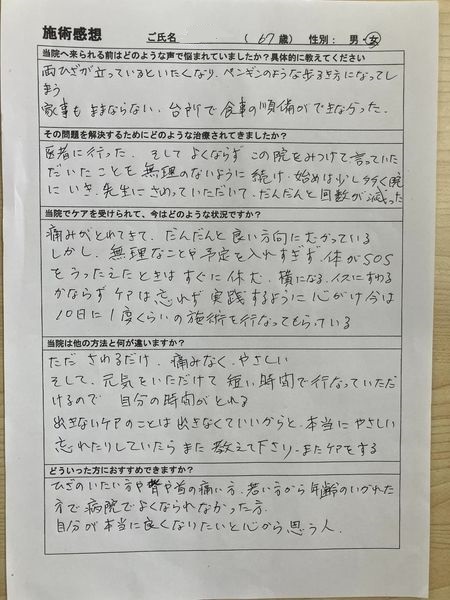 施術感想 ご氏名 (67歳) 性別： 男・女
当院へ来られる前はどのような声で悩まれていましたか？具体的に教えてください
両ひざが立っているといたくなり、ペンギンのような歩き方になってし
まう
家事もままならない、台所で食事の順備ができなかった。
その問題を解決するためにどのような治療されてきましたか？
医者に行った、そしてよくならず この院をみつけて言っていた
だいたことを無理のないように続け、始めは少し多く院
にいき、先生にさわっていただいて、だんだんと回数が減った
当院でケアを受けられて、今はどのような状況ですか？
痛みがとれてきて、だんだんと良い方向にむかっている
しかし、無理なことや予定を入れすぎず、体がSOS
をうったえたときはすぐに休む、横になる、イスにすわる
かならずケアは忘れず実践するように心がけ今は
10日に1度くらいの施術を行なってもらっている
当院は他の方法と何が違いますか？
ただ さわるだけ、痛みなく、やさしい
そして、元気をいただけて 短い時間で行なっていただ
けるので 自分の時間がとれる
出きないケアのことは出きなくていいからと、本当にやさしい
忘れたりしていたらまた教えて下さり、またケアをする
どういった方におすすめできますか？
ひざのいたい方や背や首の痛い方、若い方から年齢のいかれた
方で病院でよくなられなかった方、
自分が本当に良くなりたいと心から思う人、